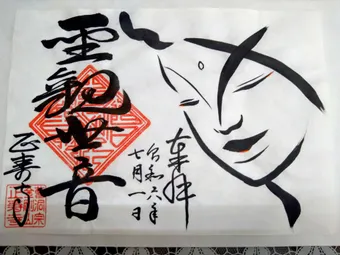 奉拝
令和六年
七月一日
聖観世音
正寿寺